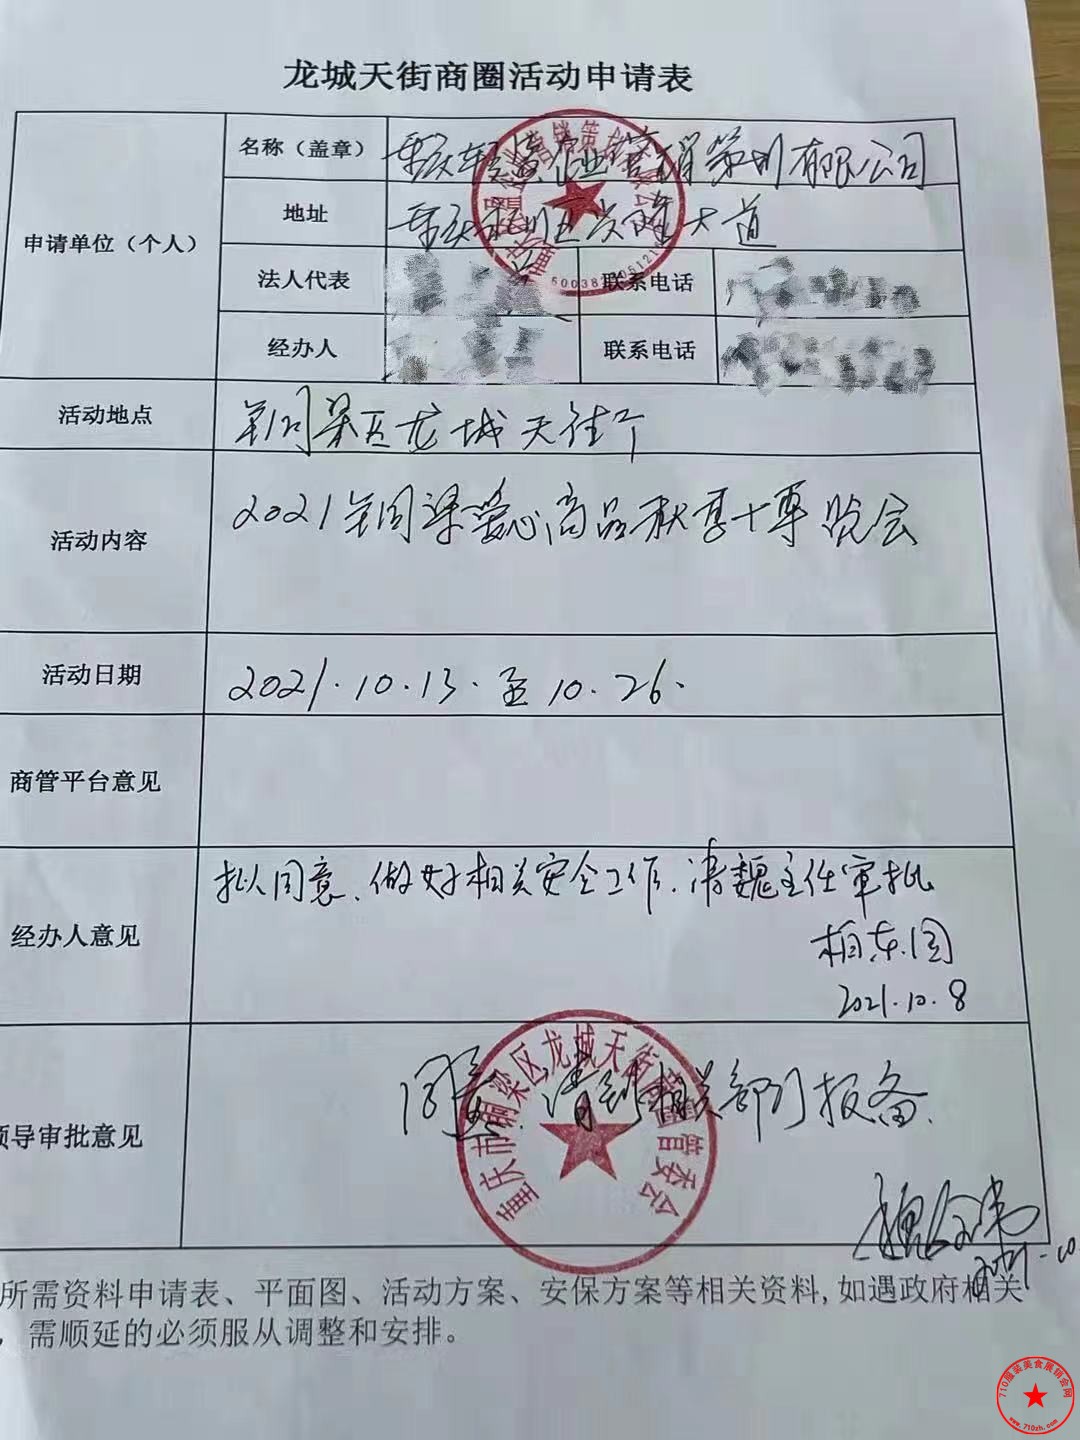 龙城天街商圈活动申请表
申请单位（个人）
名称（盖章）
企业营销策划有限公司
地址
大道
法人代表
联系电话
经办人
联系电话
活动地点
铜梁区龙城天街
活动内容
2021年铜梁爱心商品秋季博览会
活动日期
2021.10.13.至10.26.
商管平台意见
经办人意见
拟同意、做好相关安全工作.请魏主任审批
2021.10.8
领导审批意见
同意.请到相关部门报备.
重庆市铜梁区龙城天街商圈管委会
所需资料申请表、平面图、活动方案、安保方案等相关资料,如遇政府相关
，需顺延的必须服从调整和安排。
710服装美食展销会网
www.710zh.com